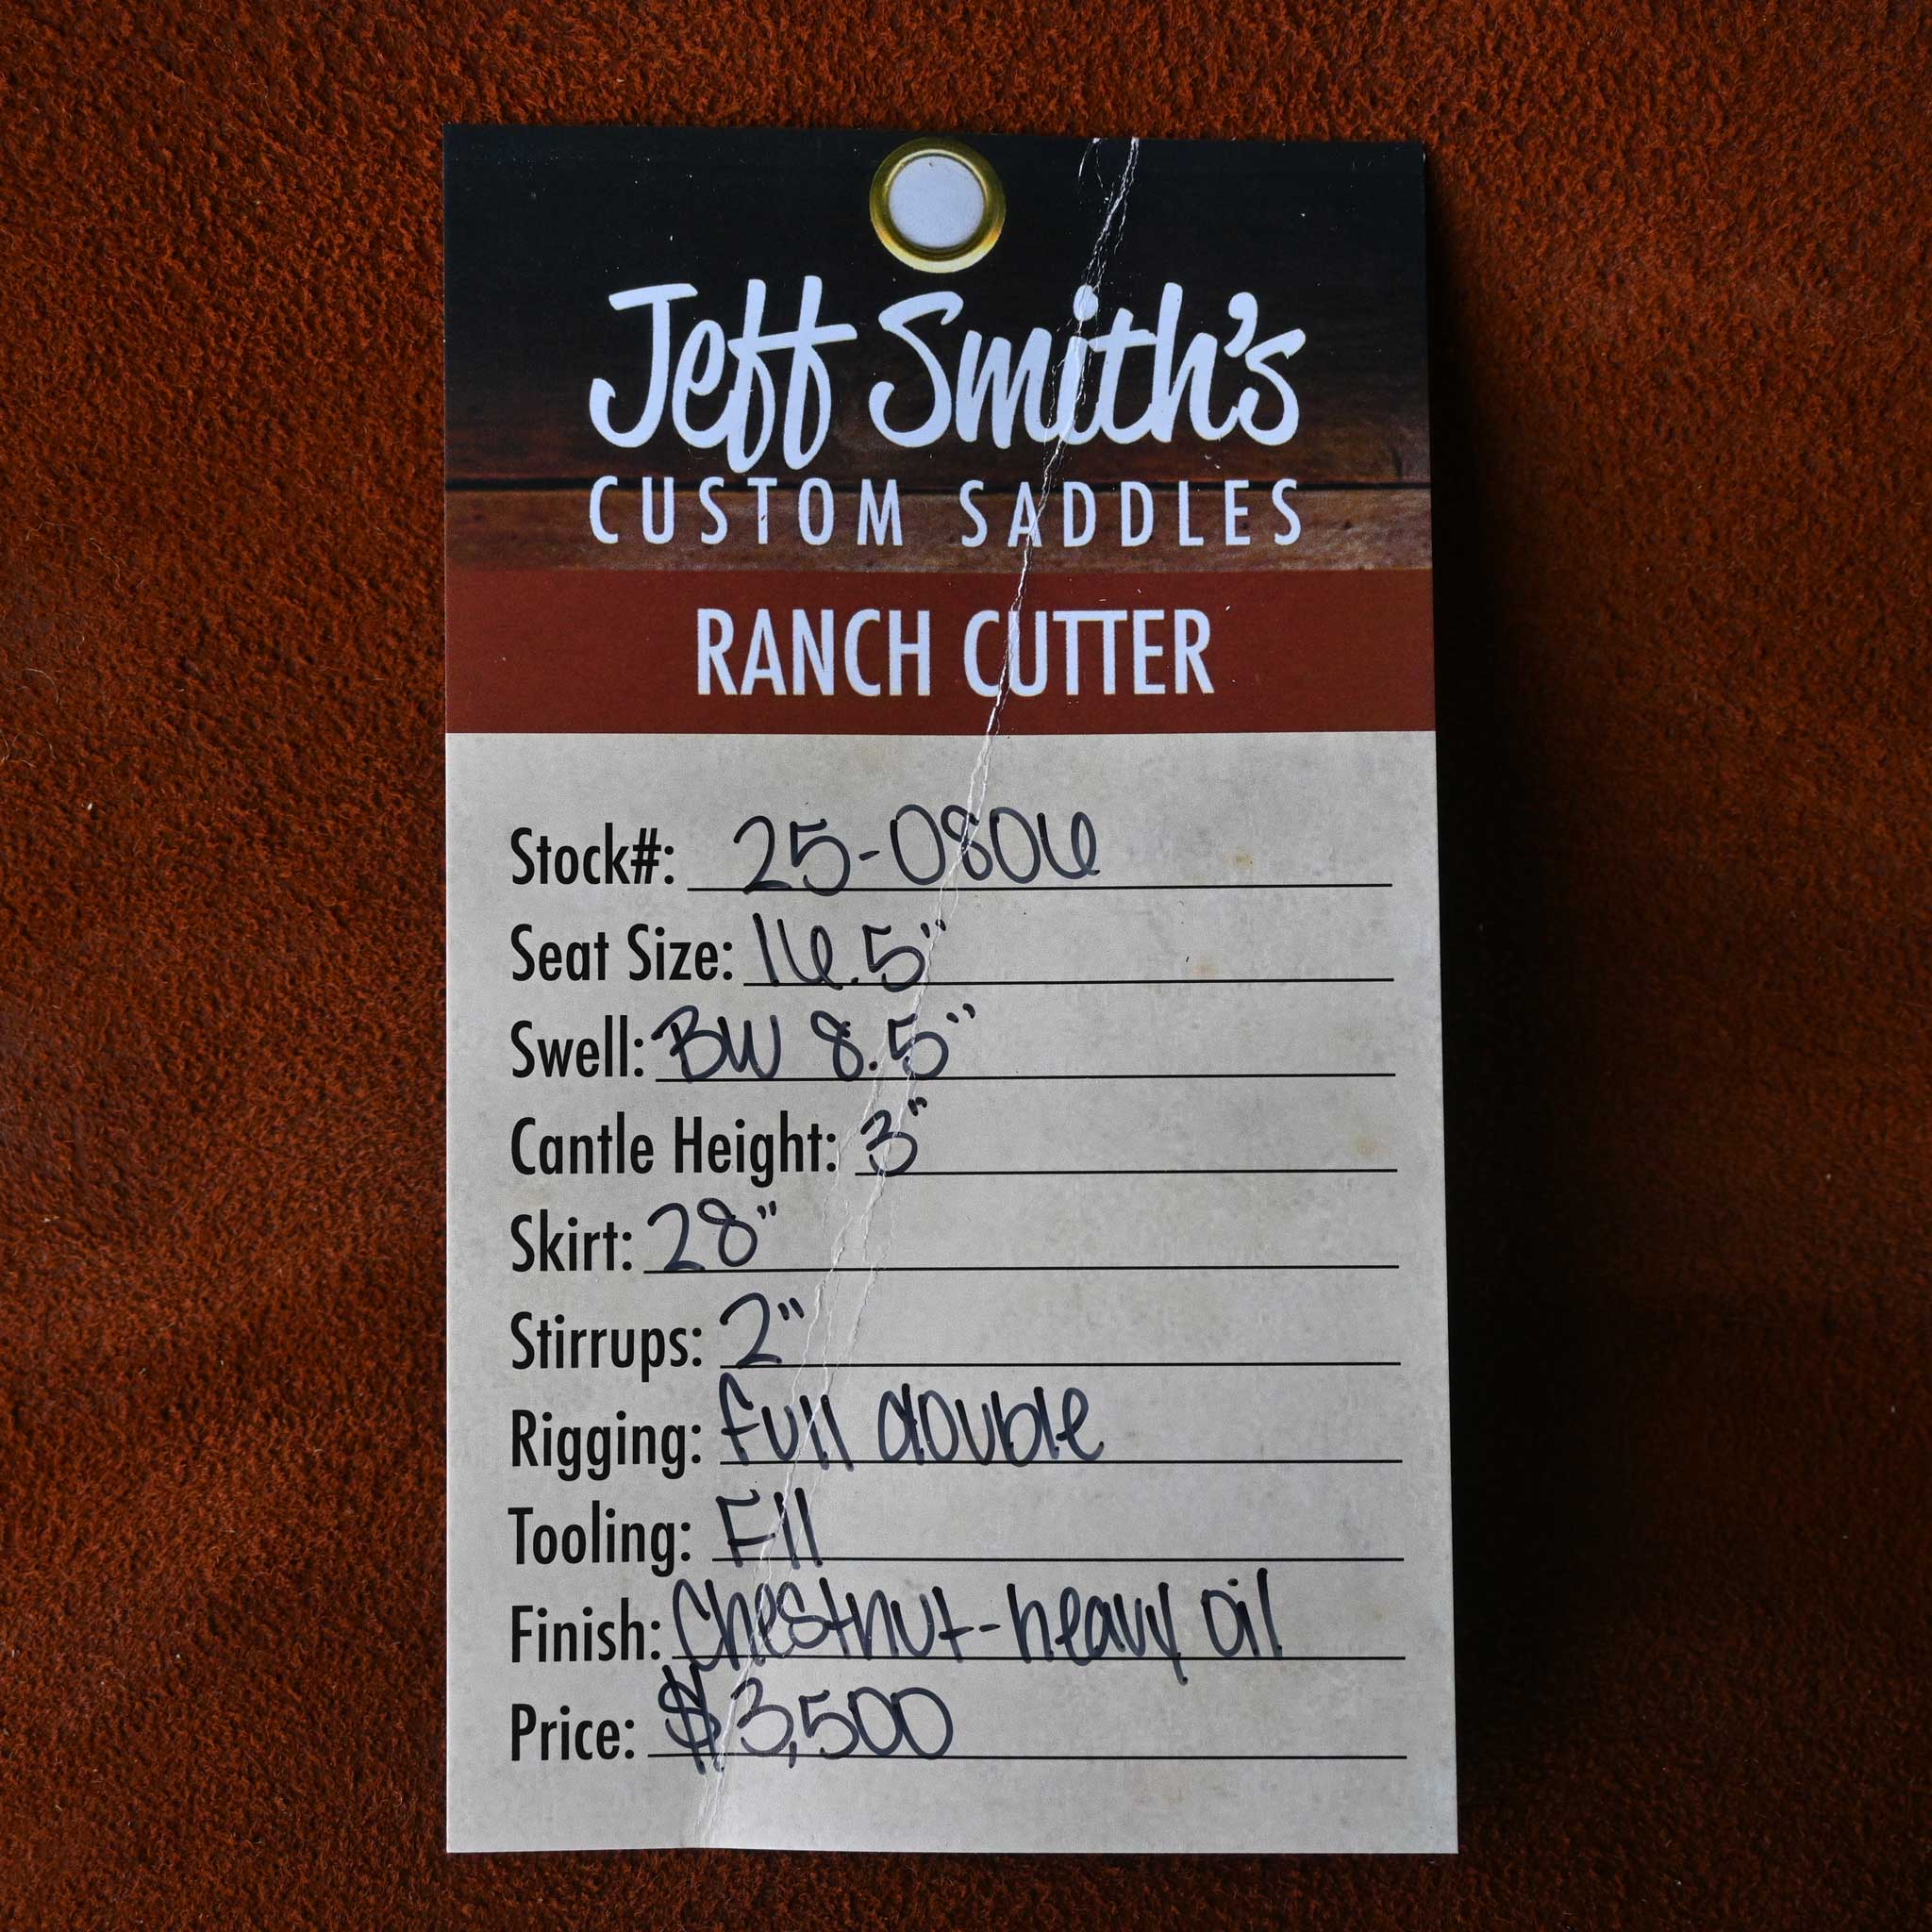 Jeff Smith's
CUSTOM SADDLES
RANCH CUTTER
Stock#: 25-0806
Seat Size: 16.5"
Swell: BW 8.5"
Cantle Height: 3"
Skirt: 28"
Stirrups: 2"
Rigging: full double
Tooling: F11
Finish: Chestnut-heavy oil
Price: $3,500